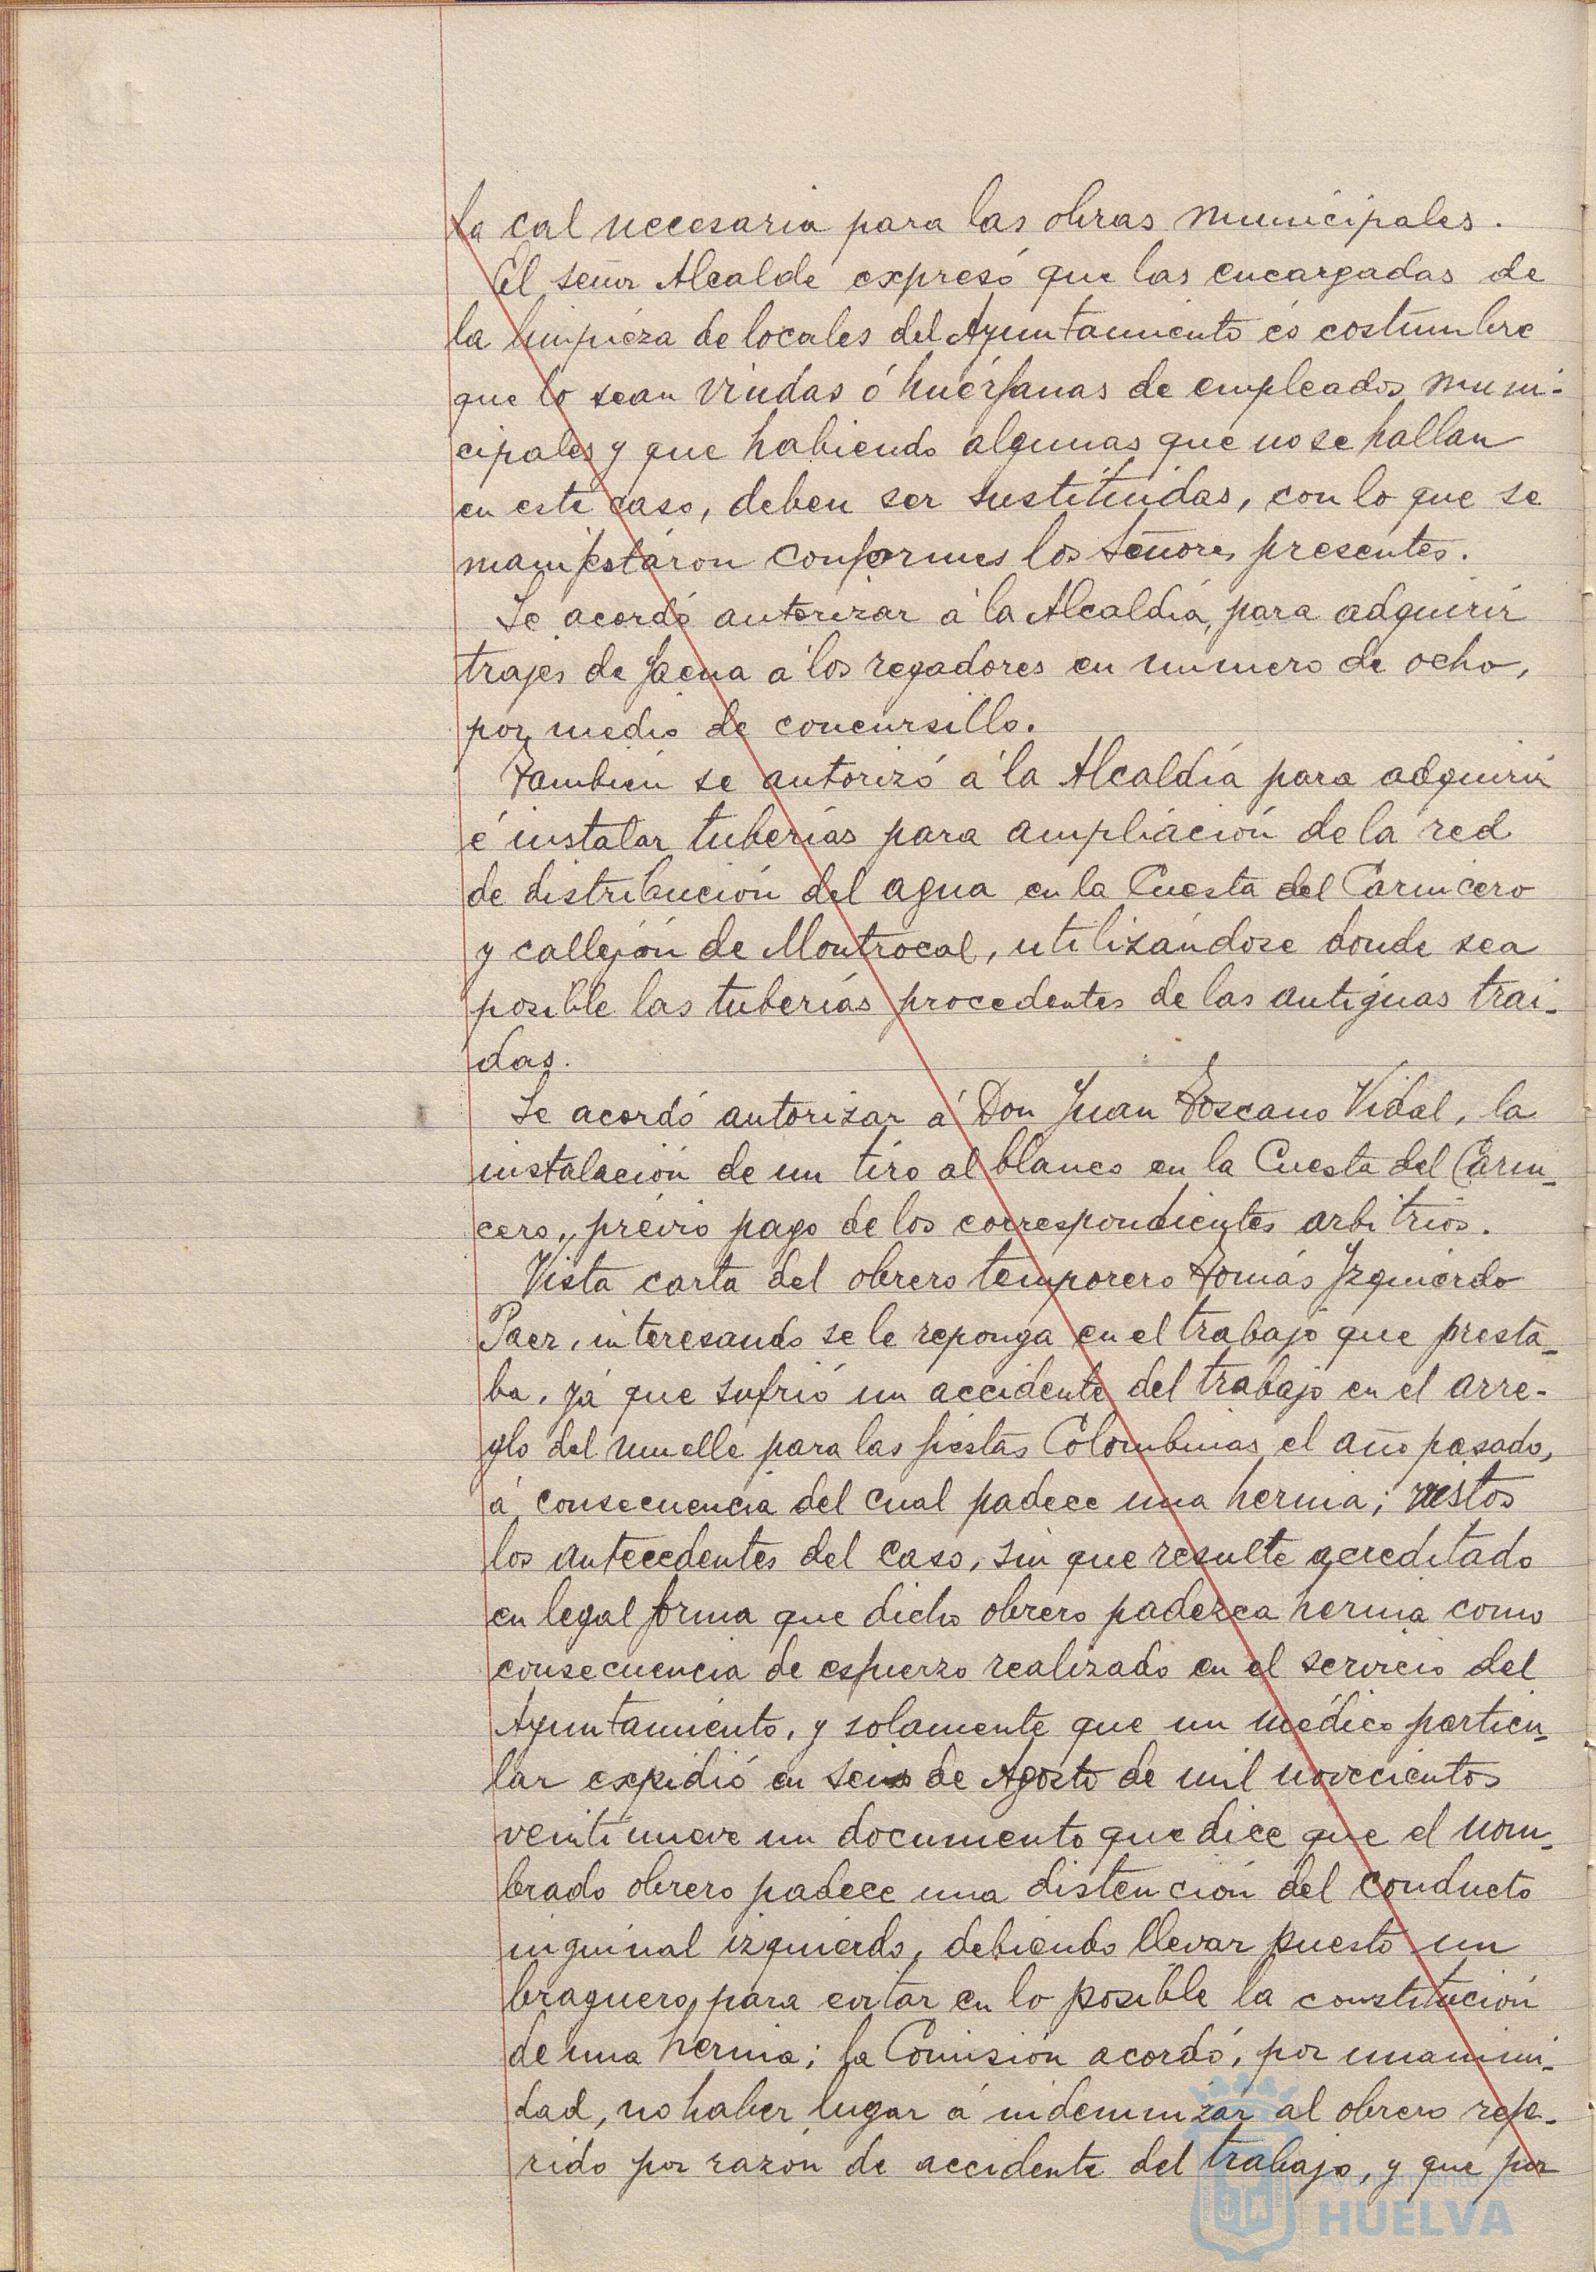 la cal necesaria para las obras municipales.
El señor Alcalde expresó que las encargadas de
la limpieza de locales del Ayuntamiento és costumbre
que lo sean viudas ó huérfanas de empleados muni-
cipales y que habiendo algunas que no se hallan
en este caso, deben ser sustituidas, con lo que se
manifestáron conformes los Señores presentes.
Se acordó autorizar á la Alcaldía, para adquirir
trajes de faena á los regadores en número de ocho,
por medio de concursillo.
También se autorizó á la Alcaldía para adquirir
é instalar tuberías para ampliación de la red
de distribución del agua en la Cuesta del Carnicero
y callejón de Montrocal, utilizándose donde sea
posible las tuberías procedentes de las antiguas trai-
das.
Se acordó autorizar á Don Juan Toscano Vidal, la
instalación de un tiro al blanco en la Cuesta del Carni-
cero, prévio pago de los correspondientes arbitrios.
Vista carta del obrero temporero Tomás Izquierdo
Paez, interesando se le reponga en el trabajo que presta-
ba, yá que sufrió un accidente del trabajo en el arre-
glo del muelle para las fiestas Colombinas el año pasado,
á consecuencia del cual padece una hernia; vistos
los antecedentes del caso, sin que resulte acreditado
en legal forma que dicho obrero padezca hernia como
consecuencia de esfuerzo realizado en el servicio del
Ayuntamiento, y solamente que un médico particu-
lar expidió en seis de Agosto de mil novecientos
veintinueve un documento que dice que el nom-
brado obrero padece una distención del conducto
inguinal izquierdo, debiendo llevar puesto un
braguero, para evitar en lo posible la constitución
de una hernia; la Comisión acordó, por unanimi-
dad, no haber lugar á indemnizar al obrero refe-
rido por razón de accidente del trabajo, y que por
Ayuntamiento de
HUELVA